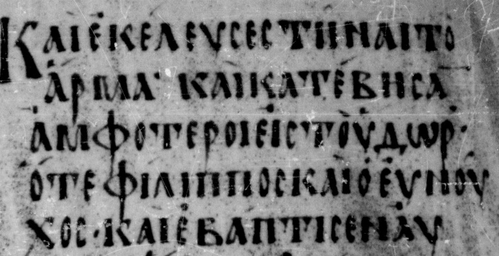 ΚΑΙΕΚΕΛΕΥΣΕΣΤΗΝΑΙΤΟ
ΑΡΜΑ· ΚΑΙΚΑΤΕΒΗΣΑ
ΑΜΦΟΤΕΡΟΙΕΙΣΤΟΥΔΩΡ·
ΟΤΕΦΙΛΙΠΠΟΣΚΑΙΟΕΥΝΟΥ
ΧΟΣ·ΚΑΙΕΒΑΠΤΙΣΕΝΑΥ